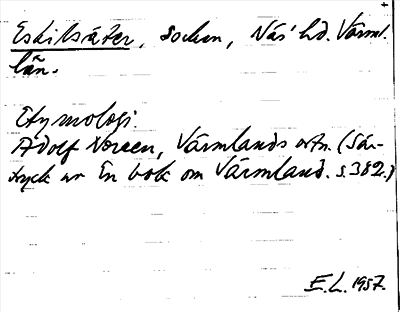 Eskilsäter, socken, Näs' hd. Värml.
län.
Etymologi.
Adolf Noreen, Värmlands ortn. (Sär-
tryck ur En bok om Värmland. s. 382.)
E.L. 1957.